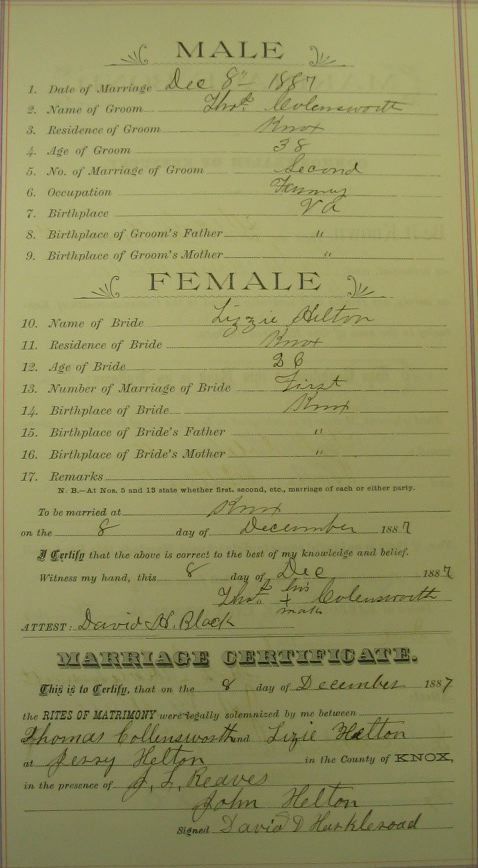 MALE
1. Date of Marriage Dec 8" 1887
2. Name of Groom Thos. Colensworth
3. Residence of Groom Knox
4. Age of Groom 38
5. No. of Marriage of Groom Second
6. Occupation
7. Birthplace VA
8. Birthplace of Groom's Father "
9. Birthplace of Groom's Mother "
FEMALE
10. Name of Bride Lizzie Hilton
11. Residence of Bride Knox
12. Age of Bride 26
13. Number of Marriage of Bride First
14. Birthplace of Bride Knox
15. Birthplace of Bride's Father "
16. Birthplace of Bride's Mother "
17. Remarks
N. B.—At Nos. 5 and 13 state whether first, second, etc., marriage of each or either party.
To be married at Knox
on the 8 day of December 1887
I Certify that the above is correct to the best of my knowledge and belief.
Witness my hand, this 8 day of Dec 1887
Thos. his + mark Colensworth
ATTEST: David H. Black
MARRIAGE CERTIFICATE.
This is to Certify, that on the 8 day of December 1887
the RITES OF MATRIMONY were legally solemnized by me between
Thomas Collensworth and Lizie Helton
at Jerry Helton in the County of KNOX,
in the presence of J. L. Reaves
John Helton
Signed David D Harkleroad